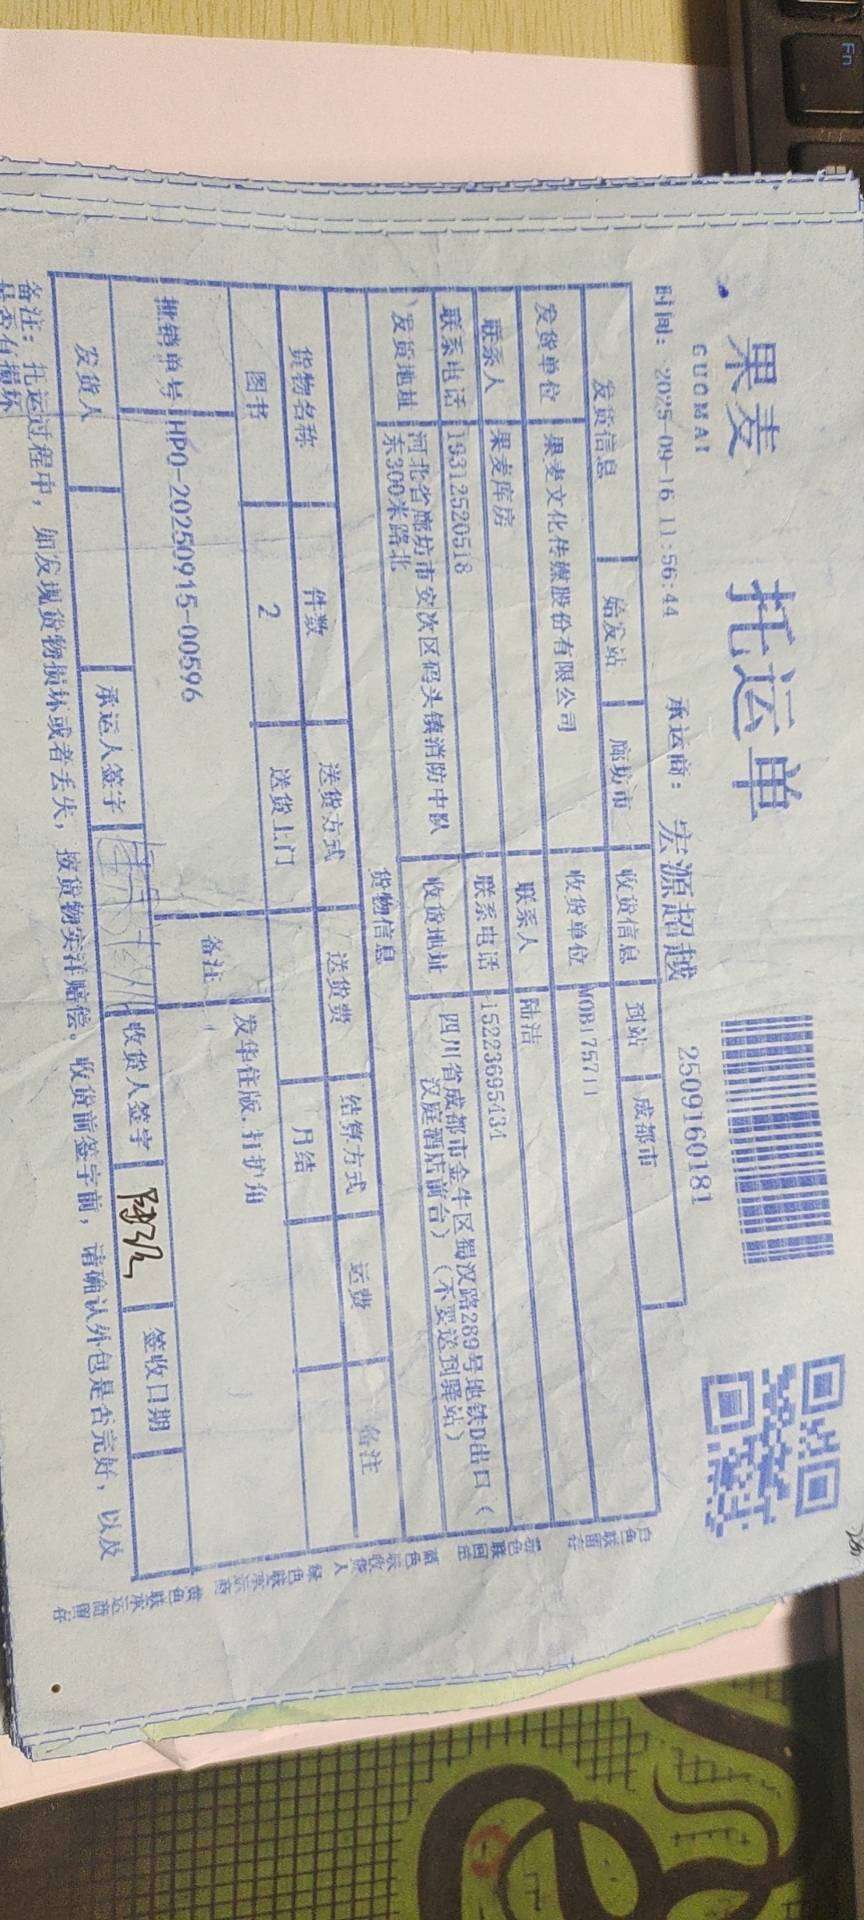 果麦 托运单
GUOMAI
时间: 2025-09-16 11:56:44 承运商: 宏源超越 2509160181
发货信息 始发站 廊坊市 收货信息 到站 成都市
发货单位 果麦文化传媒股份有限公司 收货单位 MOB175711
联系人 果麦库房 联系人 陆洁
联系电话 19312520518 联系电话 15223695434
发货地址 河北省廊坊市安次区码头镇消防中队
东300米路北
收货地址 四川省成都市金牛区蜀汉路289号地铁D出口(
汉庭酒店前台)(不要送到驿站)
货物信息
货物名称 件数 送货方式 送货费 结算方式 运费 备注
图书 2 送货上门 月结
批销单号 HPO-20250915-00596 备注 发华住版,打护角
发货人 承运人签字 收货人签字 签收日期
备注: 托运过程中, 如发现货物损坏或者丢失, 按货物实洋赔偿。收货前签字前, 请确认外包是否完好, 以及
是否有损坏
白色联留存
粉色联回签
蓝色联收货人
绿色联承运商
黄色联承运商留存
Fn